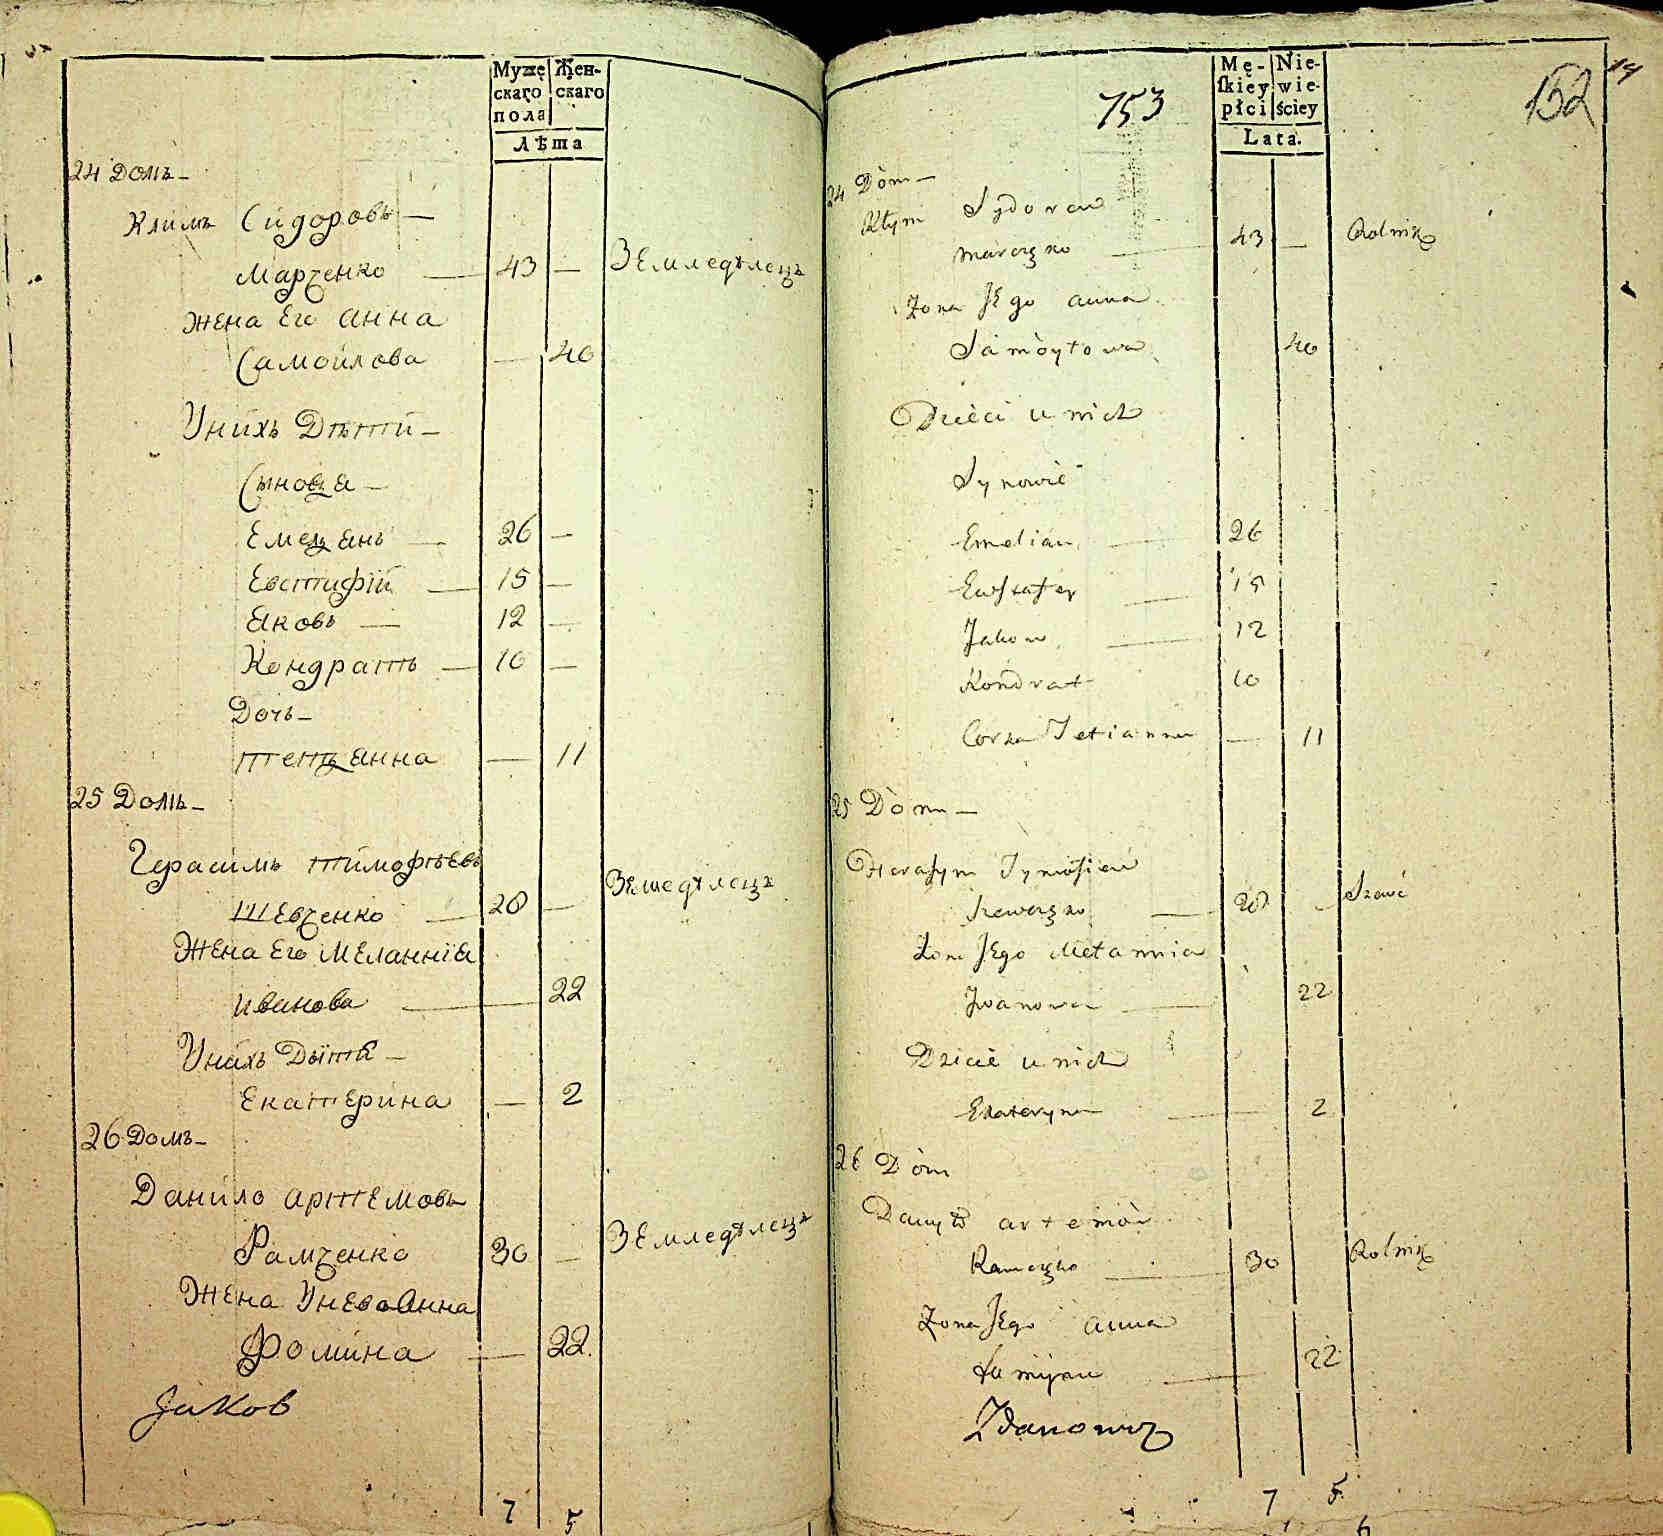 Муже
скаго
пола
Жен-
скаго
Лѣта
24 Домъ
Климъ Сидоровъ
Марченко — 43 — Земледѣлецъ
Жена Его Анна
Самойлова — 40
Унихъ Дѣти
Сыновья
Емельянъ — 26 —
Евстифій — 15 —
Яковъ — 12 —
Кондратъ — 10 —
Дочь
Тетьянна — 11
25 Домъ
Герасимъ Тимофѣевъ
Шевченко — 28 — Земледѣлецъ
Жена Его Меланнія
Иванова — 22
Унихъ Дѣти
Екатерина — 2
26 Домъ
Данило Артемовъ
Рамченко 30 — Земледѣлецъ
Жена Унево Анна
Фомина — 22.
Jakob
7 5
753
Mę-
skiey
płci
Nie-
wie-
ściey
Lata.
152
14
24 Dòm
Kłym Sydorow
Marczęko — 43 — Rolnik
Zona Jego anna
Samòyłowa 40
Dzieci u nich
Synowie
Emelian — 26
Eustafey — 15
Jakow — 12
Kondrat 10
Corka Tetianna — 11
25 Dòm
Herasym Tymofiew
Szewczęko — 28 — Szewc
Zona Jego Melannia
Jwanowa — 22
Dzicie u nich
Ekateryna — 2
26 Dòm
Danyło artemòw
Ramczęko — 30 Rolnik
Zona Jego anna
— 22
Zdanowicz
7 5
6